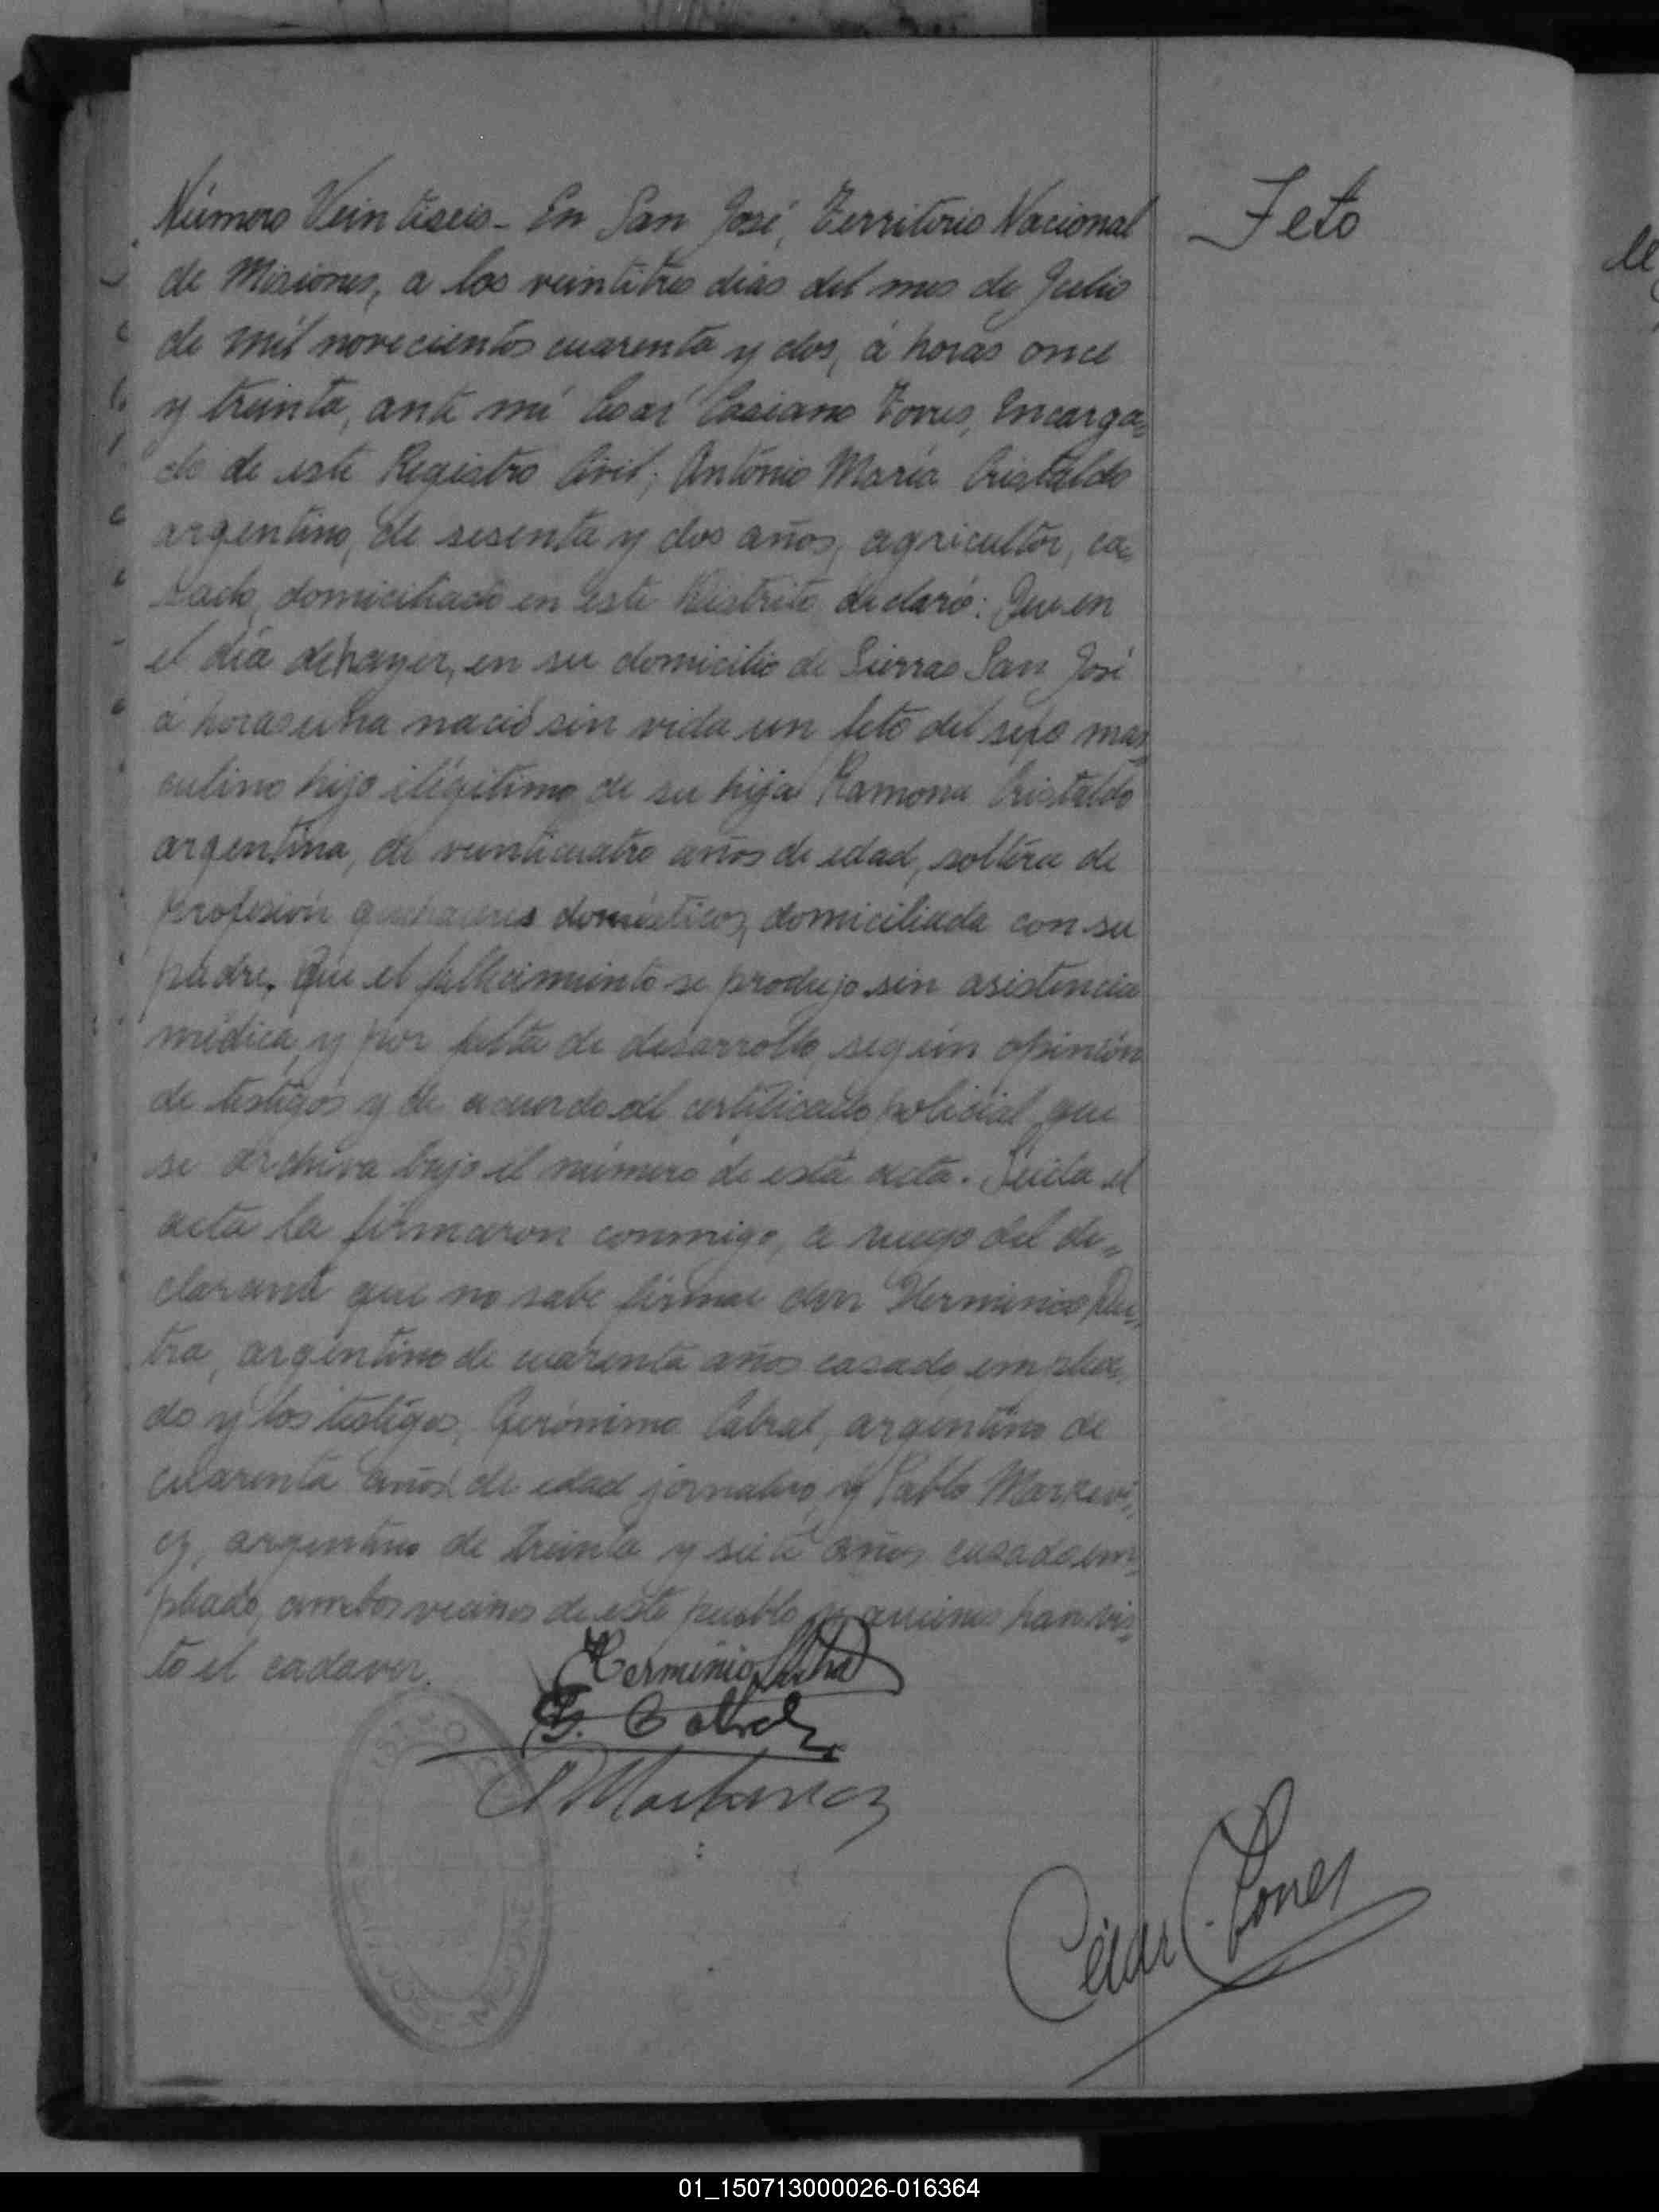 Número Veintiseis - En San José, Territorio Nacional
Feto
de Misiones, a los veintitres dias del mes de Julio
de mil novecientos cuarenta y dos, á horas once
y treinta, ante mi Cesar Casiano Torres, Encarga=
do de este Registro Civil; Antonio María Cristaldo
argentino, de sesenta y dos años, agricultor, ca=
sado, domiciliado en este Distrito declaró: Que en
el día de hayer, en su domicilio de Sierras San José
á horas una nació sin vida un feto del sexo mas=
culino hijo ilégitimo de su hija Ramona Cristaldo
argentina, de veinticuatro años de edad, soltera de
profesión quehaceres domésticos, domiciliada con su
padre. Que el fallecimiento se produjo sin asistencia
médica, y por falta de desarrollo, según opinión
de testigos y de acuerdo al certificado policial que
se archiva bajo el número de esta acta. Leida el
acta la firmaron conmigo, a ruego del de=
clarante que no sabe firmar don Herminio Du=
tra, argentino de cuarenta años casado, emplea=
do y los testigos, Gerónimo Cabral, argentino de
cuarenta años de edad jornalero, y Pablo Markevi=
cz, argentino de treinta y siete años casado em=
pleado, ambos vecinos de este pueblo y quienes han vis=
to el cadaver.
Herminio Dutra
G. Cabral
P Markevicz
César C. Torres
01_150713000026-016364